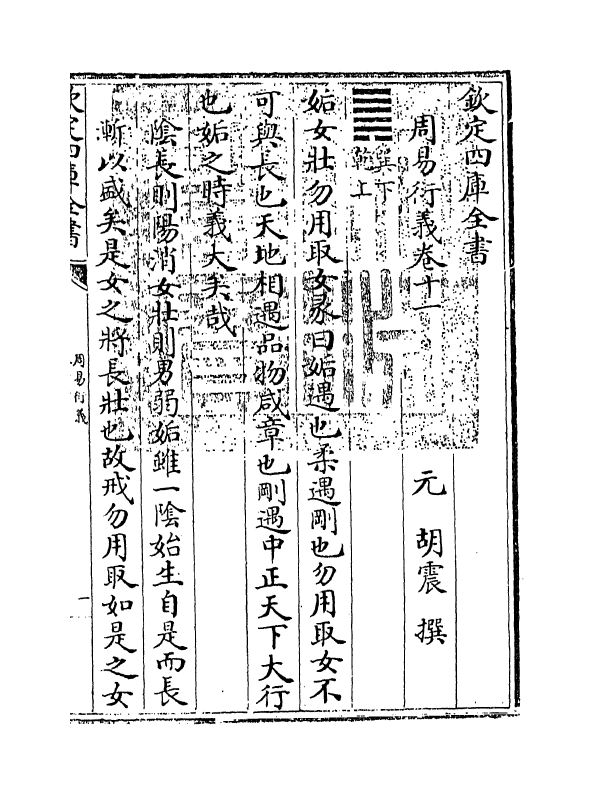 欽定四庫全書
周易衍義卷十一
元 胡震 撰
䷫
巽下
乾上
姤女壯勿用取女彖曰姤遇也柔遇剛也勿用取女不
可與長也天地相遇品物咸章也剛遇中正天下大行
也姤之時義大矣哉
陰長則陽消女壯則男弱姤雖一陰始生自是而長
漸以盛矣是女之將長壯也故戒勿用取如是之女
欽定四庫全書
周易衍義
一